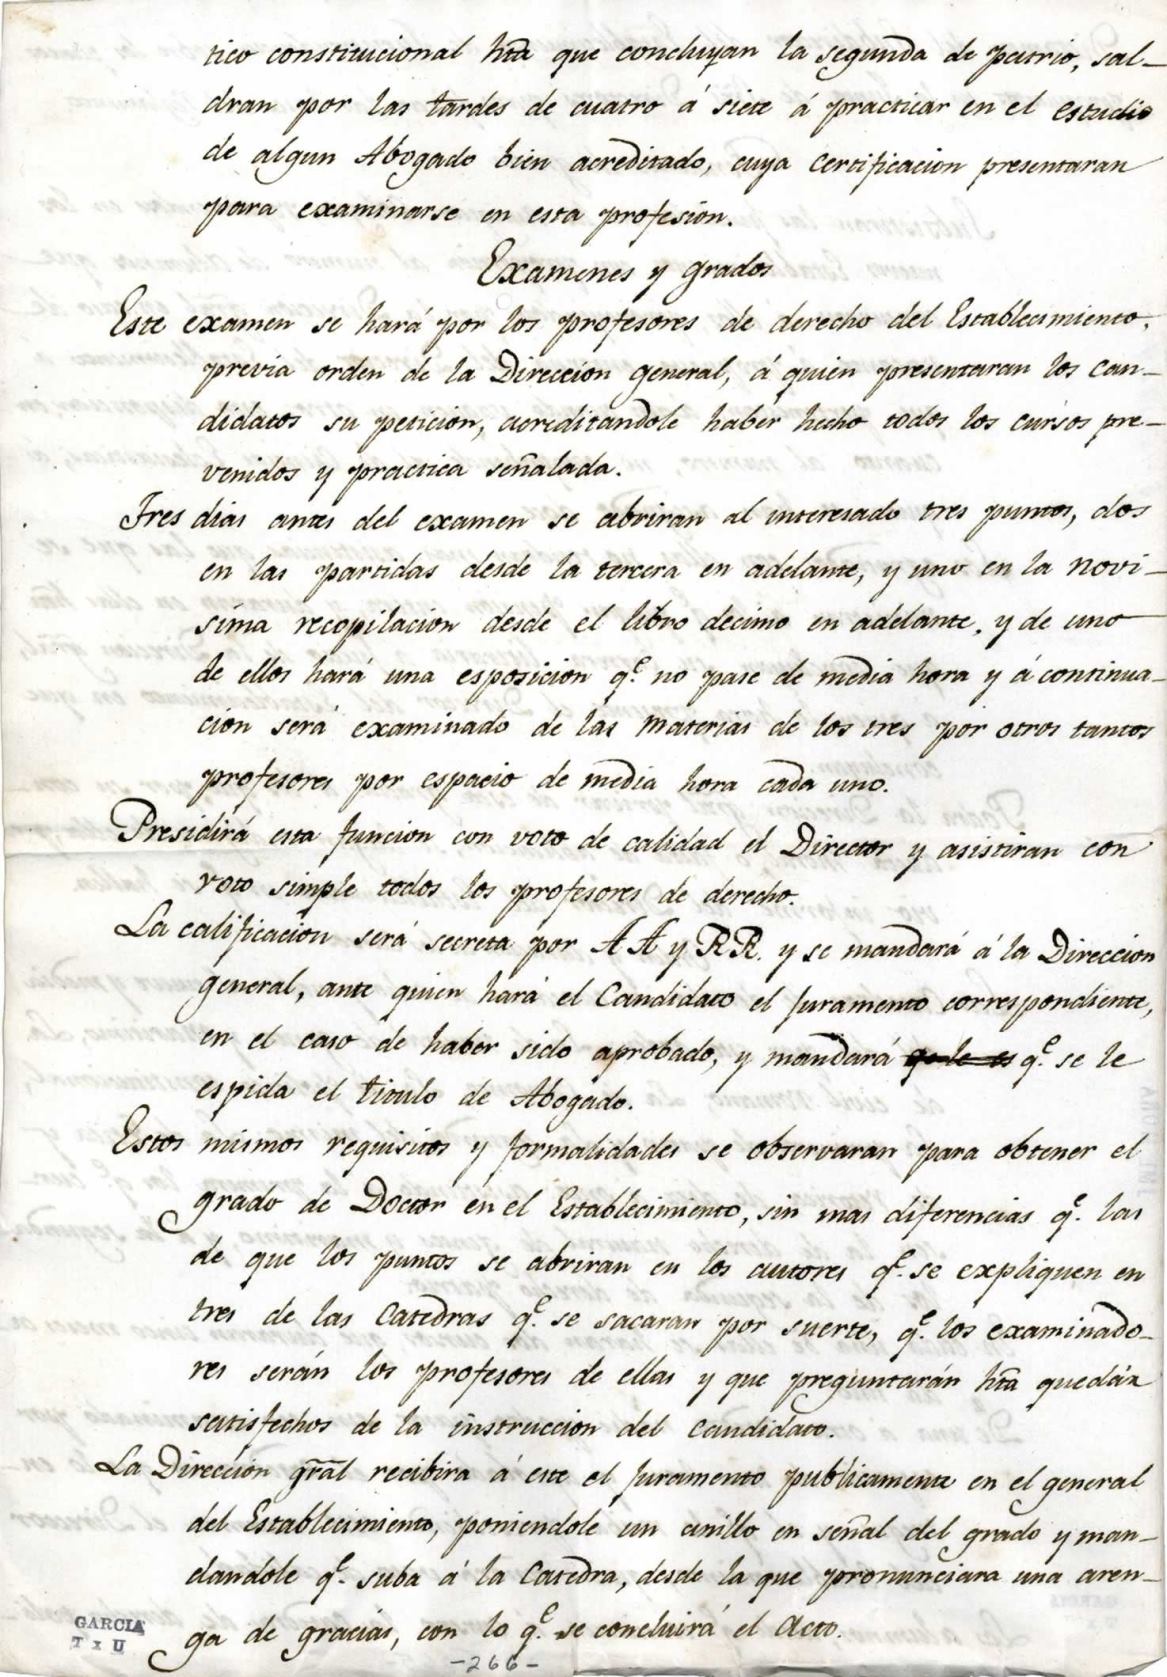 tico constitucional hta que concluyan la segunda de patrio, sal-
dran por las tardes de cuatro á siete á practicar en el estudio
de algun Abogado bien acreditado, cuya certificacion presentaran
para examinarse en esta profesion.
Examenes y grados
Este examen se hará por los profesores de derecho del Establecimiento,
previa orden de la Direccion general, á quien presentaran los can-
didatos su peticion, acreditandole haber hecho todos los cursos pre-
venidos y practica señalada.
Tres dias antes del examen se abriran al interesado tres puntos, dos
en las partidas desde la tercera en adelante, y uno en la novi-
sima recopilacion desde el libro decimo en adelante, y de uno
de ellos hará una esposicion qe. no pase de media hora y á continua-
cion será examinado de las materias de los tres por otros tantos
profesores por espacio de media hora cada uno.
Presidirá esta funcion con voto de calidad el Director y asistiran con
voto simple todos los profesores de derecho.
La calificacion será secreta por AA y RR. y se mandará á la Direccion
general, ante quien hará el Candidato el juramento correspondiente,
en el caso de haber sido aprobado, y mandará qe. se le
espida el titulo de Abogado.
Estos mismos requisitos y formalidades se observaran para obtener el
grado de Doctor en el Establecimiento, sin mas diferencias qe. las
de que los puntos se abriran en los autores qe. se expliquen en
tres de las Catedras qe. se sacaran por suerte, qe. los examinado-
res serán los profesores de ellas y que preguntarán hta quedar
satisfechos de la instruccion del Candidato.
La Direccion gral recibira á este el juramento publicamente en el general
del Establecimiento, poniendole un anillo en señal del grado y man-
dandole qe. suba á la Catedra, desde la que pronunciara una aren-
ga de gracias, con lo qe. se concluirá el Acto.
GARCIA
T x U
-266-